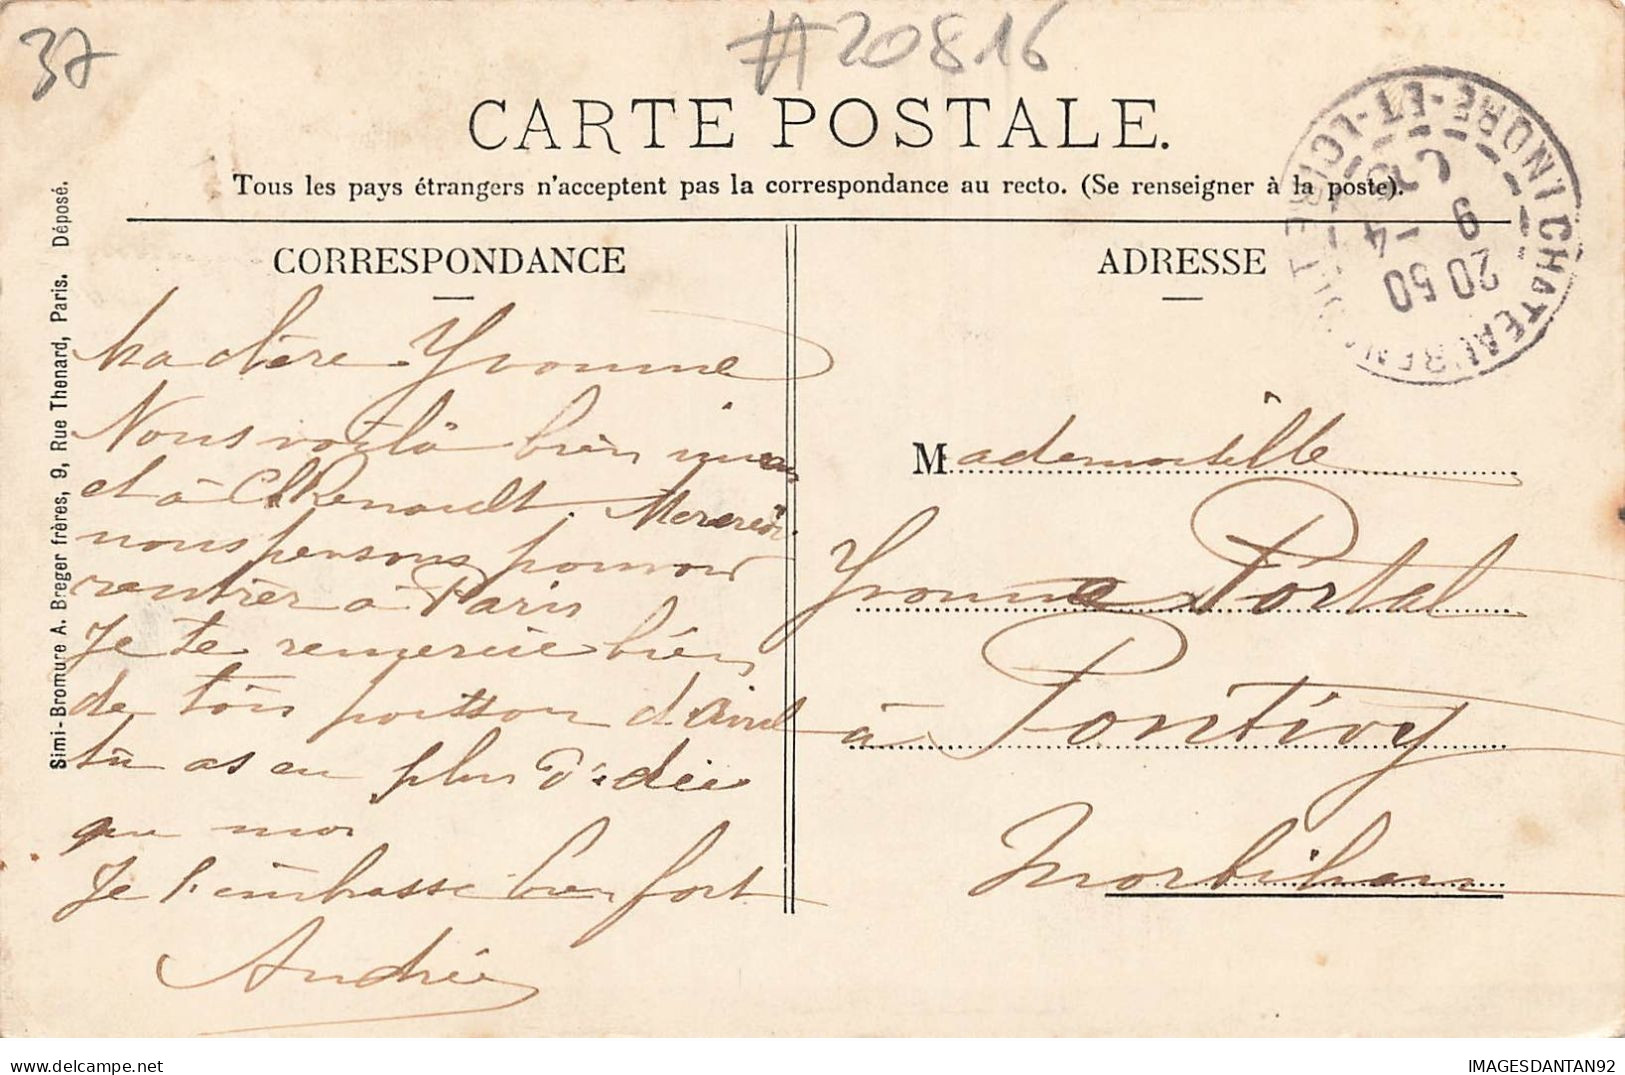 37
#20816
CARTE POSTALE.
Tous les pays étrangers n'acceptent pas la correspondance au recto. (Se renseigner à la poste).
CORRESPONDANCE
ADRESSE
Simi-Bromure A. Breger frères, 9, Rue Thenard, Paris. Déposé.
CHATEAURENAULT INDRE-ET-LOIRE
20 50
9 - 4
Ma chère Yvonne
Nous voilà bien
et à Ch Renault. Mercredi
nous pensons pouvoir
rentrer à Paris
Je te remercie bien
de ton poisson d'Avril
tu as eu plus d'idée
que moi
Je t'embrasse bien fort
Andrée
Mademoiselle
Yvonne Portal
à Pontivy
Morbihan
IMAGESDANTAN92